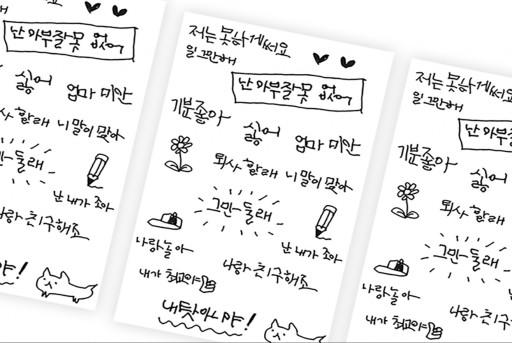 난 아무잘못 없어
싫어
엄마 미안
퇴사 할래 니 말이 맞아
그만둘래
난 내가 좋아
나랑 친구해죠
저는 못하게써요
일 그만해
난 아무잘못 없어
기분좋아
싫어
엄마 미안
퇴사 할래 니 말이 맞아
그만둘래
난 내가 좋아
나랑놀아
나랑 친구해죠
내가 최고야
내탓아니야!
저는 못하게써요
일 그만해
난 아무잘못
기분좋아
싫어
퇴사 할래
그만둘래
나랑놀아
나랑 친구
내가 최고야